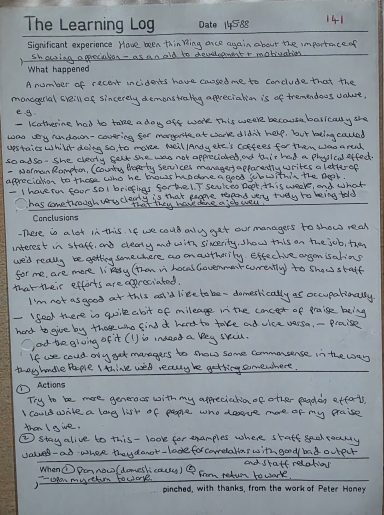 The Learning Log Date 14588 141
Significant experience Have been thinking once again about the importance of
showing appreciation - as an aid to development + motivation
What happened
A number of recent incidents have caused me to conclude that the
managerial skill of sincerely demonstrating appreciation is of tremendous value,
e.g.
- Katherine had to take a day off work this week because basically she
was very rundown - covering for margarite at work didn't help, but being called
upstairs whilst doing so, to make Neil/Andy etc's coffees for them was a real
so and so - She clearly felt she was not appreciated, and this had a physical effect.
- Norman Rompton, (County Property Services manager) apparently writes a letter of
appreciation to those who he knows has done a good job within the Dept.
- I have run four SDI briefings for the I.T Services Dept, this week, and what
has come through very clearly is that people respond very truly to being told
that they have done a job well
Conclusions
- There is a lot in this. If we could only get our managers to show real
interest in staff, and clearly and with sincerity show this on the job, then
we'd really be getting somewhere as an authority. Effective organisations
for me, are more likely (than in Local Government currently) to show staff
that their efforts are appreciated.
I'm not as good at this as I'd like to be - domestically as occupationally.
- I feel there is quite a bit of mileage in the concept of praise being
hard to give by those who find it hard to take and vice versa, - praise
and the giving of it (!) is indeed a key skill.
If we could only get managers to show some commonsense in the way
they handle People I think we'd really be getting somewhere.
① Actions
Try to be more generous with my appreciation of other people's efforts.
I could write a long list of people who deserve more of my praise
than I give.
② Stay alive to this - look for examples where staff feel really
valued - and where they do not - look for correlations with good/bad output
and staff relations
When ① From now (domestically) ② From return to work.
- upon my return to work
pinched, with thanks, from the work of Peter Honey